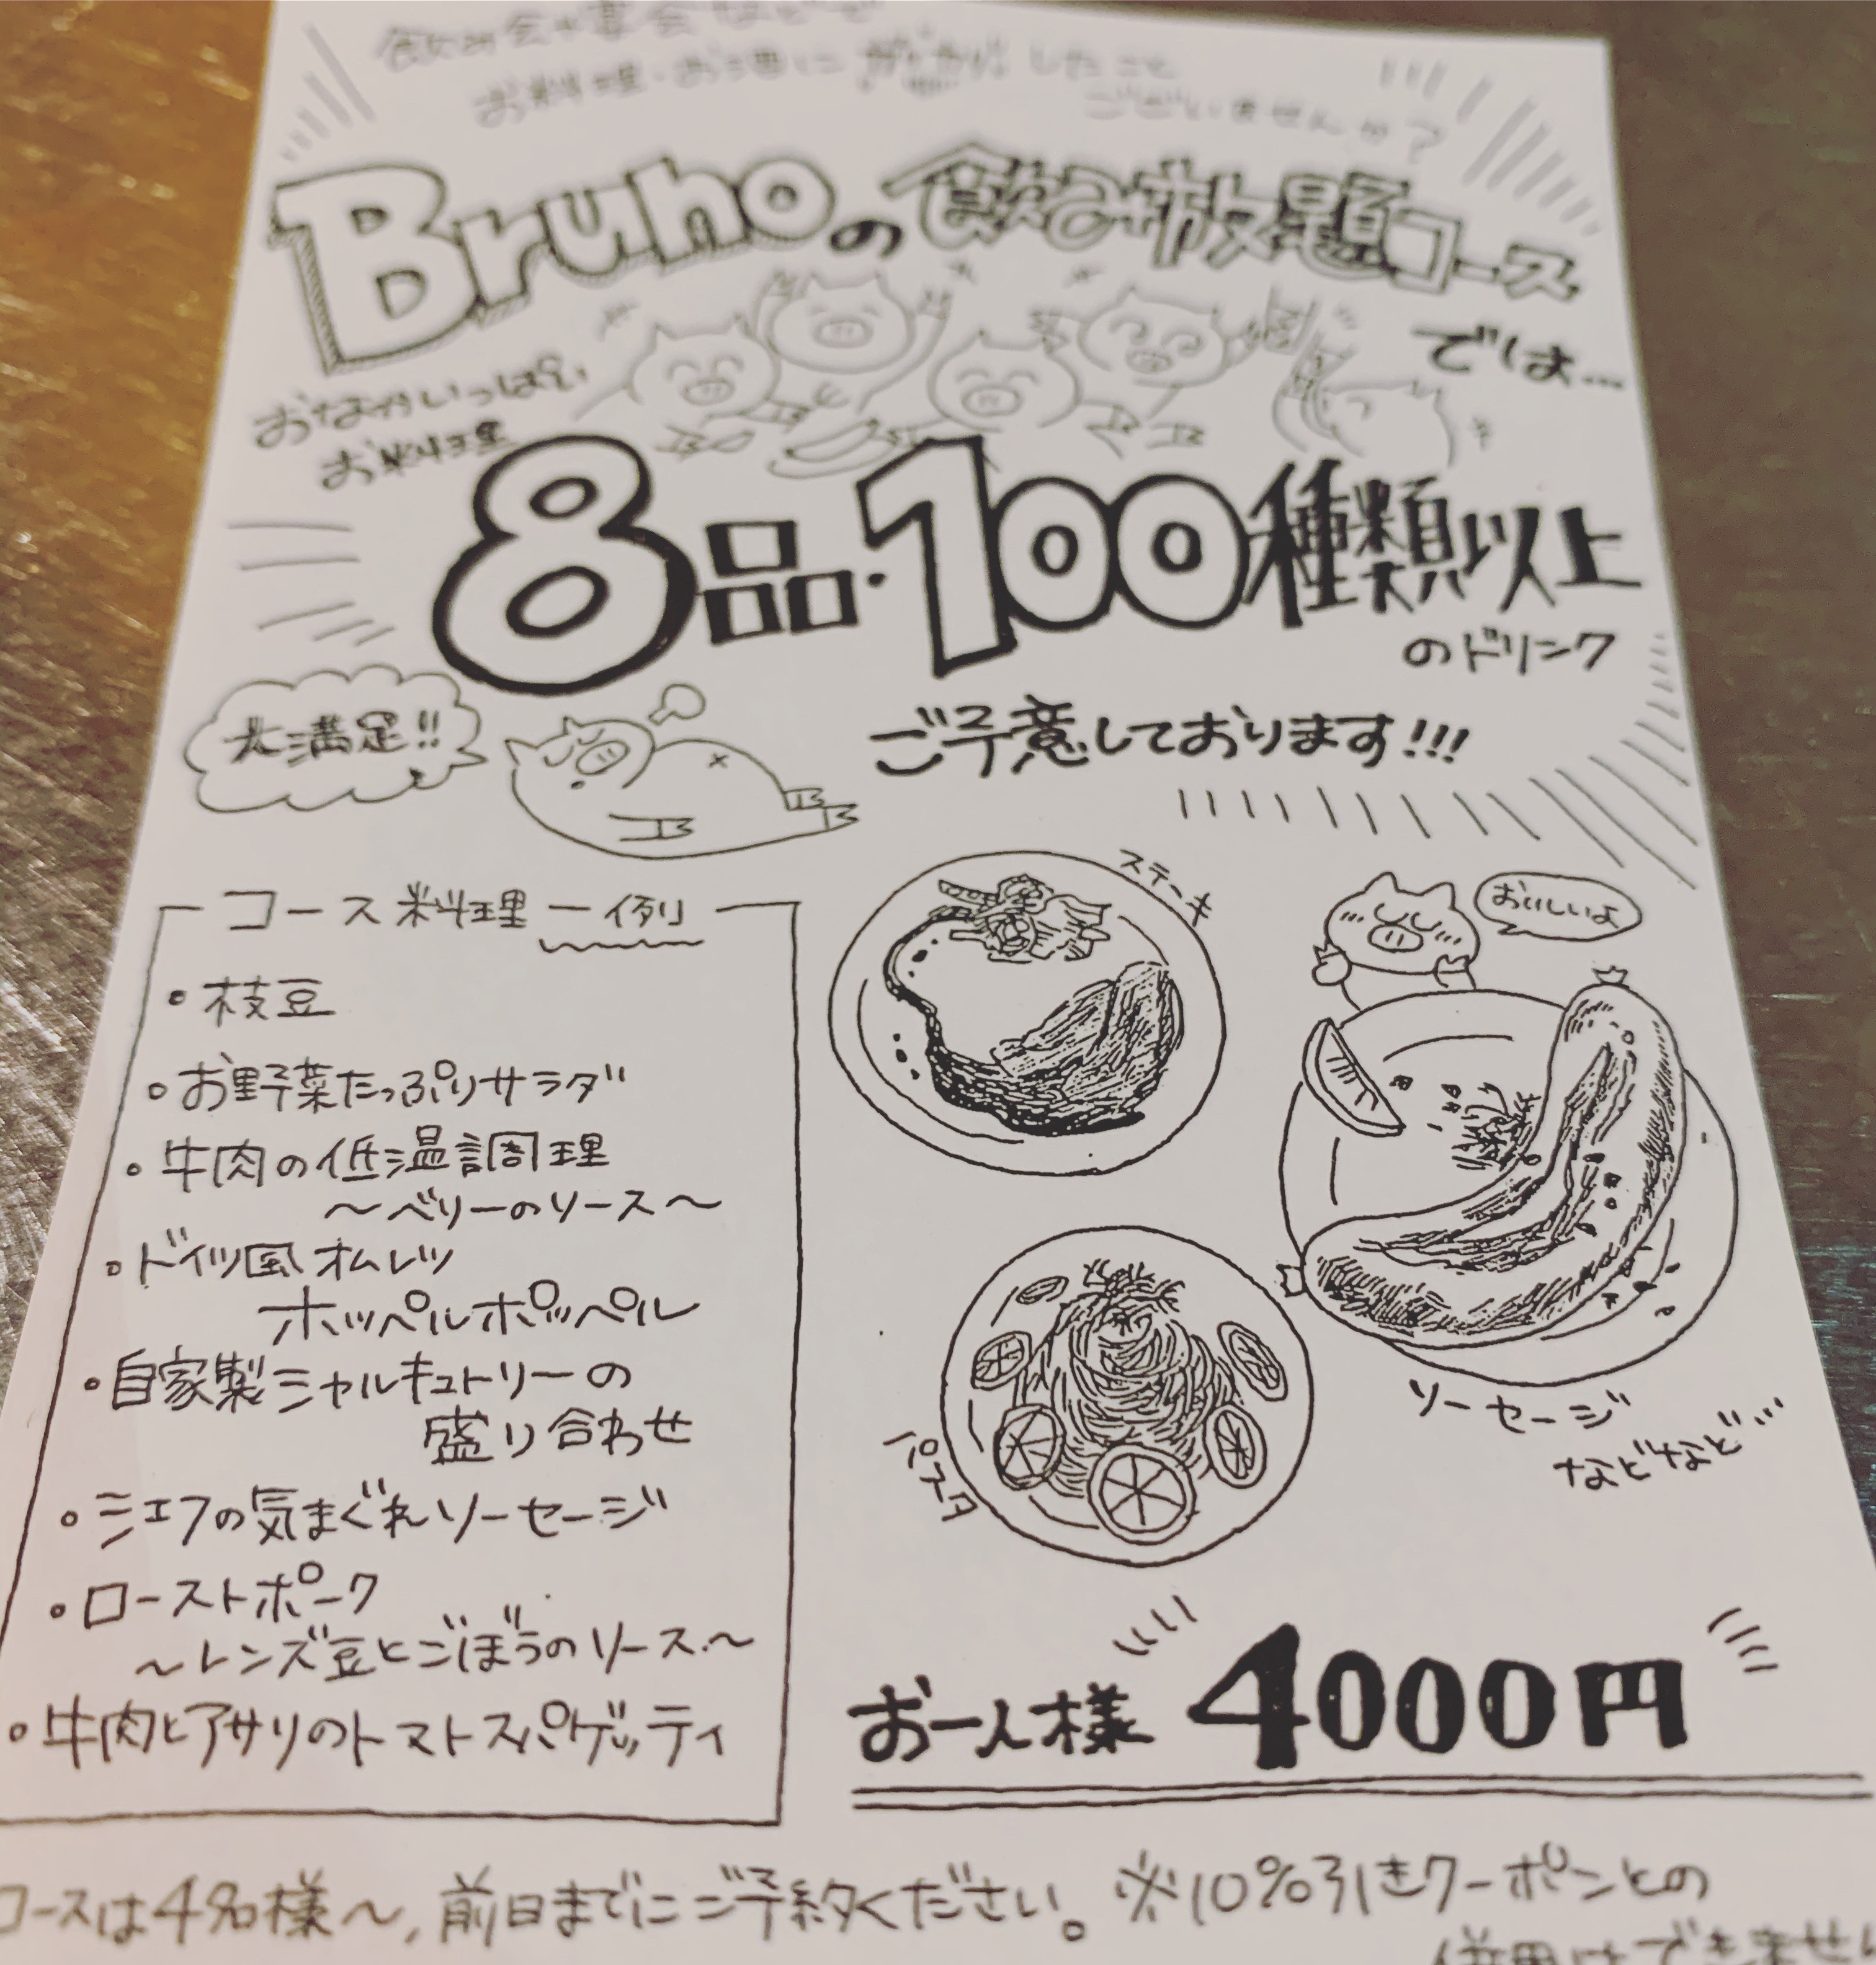 飲み会や宴会などで
お料理・お酒にがっかりしたこと
ございませんか?
Brunoの飲み放題コース
では...
おなかいっぱい
お料理
8品・100種類以上
のドリンク
大満足!!
ご予意しております!!!
コース料理一例
・枝豆
・お野菜たっぷりサラダ
・牛肉の低温調理
〜ベリーのソース〜
・ドイツ風オムレツ
ホッペルポッペル
・自家製シャルキュトリーの
盛り合わせ
・シェフの気まぐれソーセージ
・ローストポーク
〜レンズ豆とごぼうのソース〜
・牛肉とアサリのトマトスパゲッティ
ステーキ
おいしいよ
ソーセージ
などなど...
パスタ
お一人様 4000円
コースは4名様〜,前日までにご予約ください。※10%引きクーポンとの
併用はできません